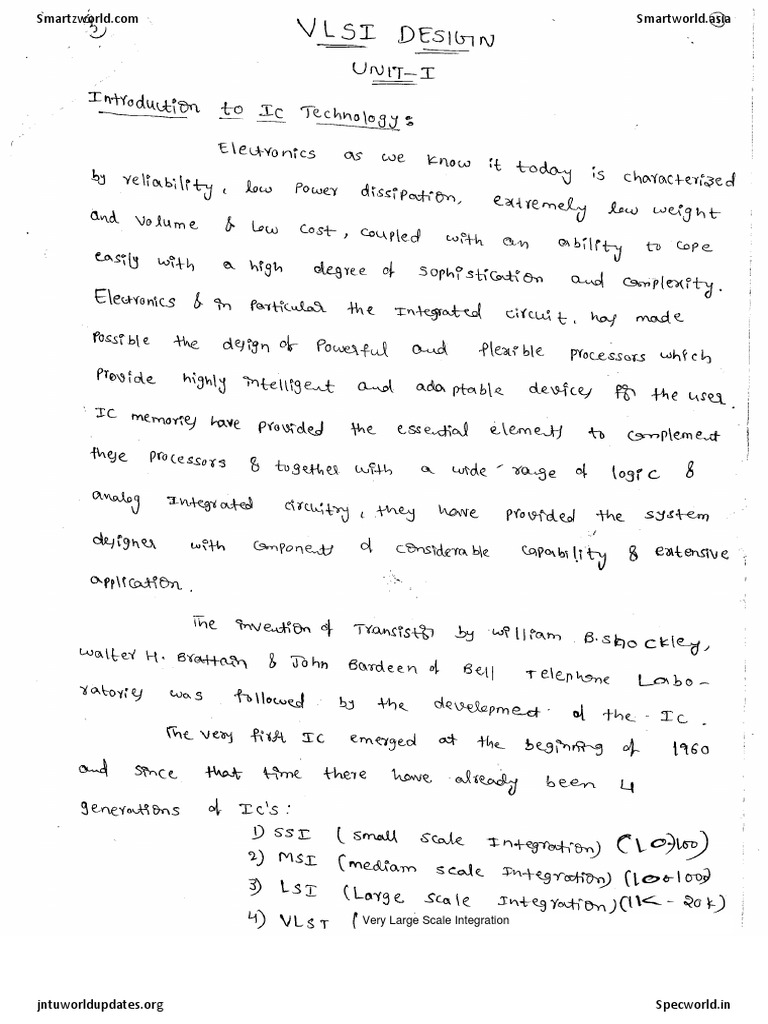 Smartzworld.com Smartworld.asia
VLSI DESIGN
UNIT-I
Introduction to IC Technology:
Electronics as we know it today is characterized
by reliability, low power dissipation, extremely low weight
and volume & low cost, coupled with an ability to cope
easily with a high degree of sophistication and complexity.
Electronics & in particular the Integrated circuit, has made
possible the design of powerful and flexible processors which
provide highly intelligent and adaptable devices for the user.
IC memories have provided the essential elements to complement
these processors & together with a wide range of logic &
analog Integrated circuitry, they have provided the system
designer with components of considerable capability & extensive
application.
The invention of Transistor by William B. Shockley,
Walter H. Brattain & John Bardeen of Bell Telephone Labo-
ratories was followed by the development of the IC.
The very first IC emerged at the beginning of 1960
and since that time there have already been 4
generations of IC's:
1) SSI (small scale Integration) (10-100)
2) MSI (mediam scale Integration) (100-1000)
3) LSI (Large scale Integration) (1K - 20K)
4) VLSI (Very Large Scale Integration
jntuworldupdates.org Specworld.in